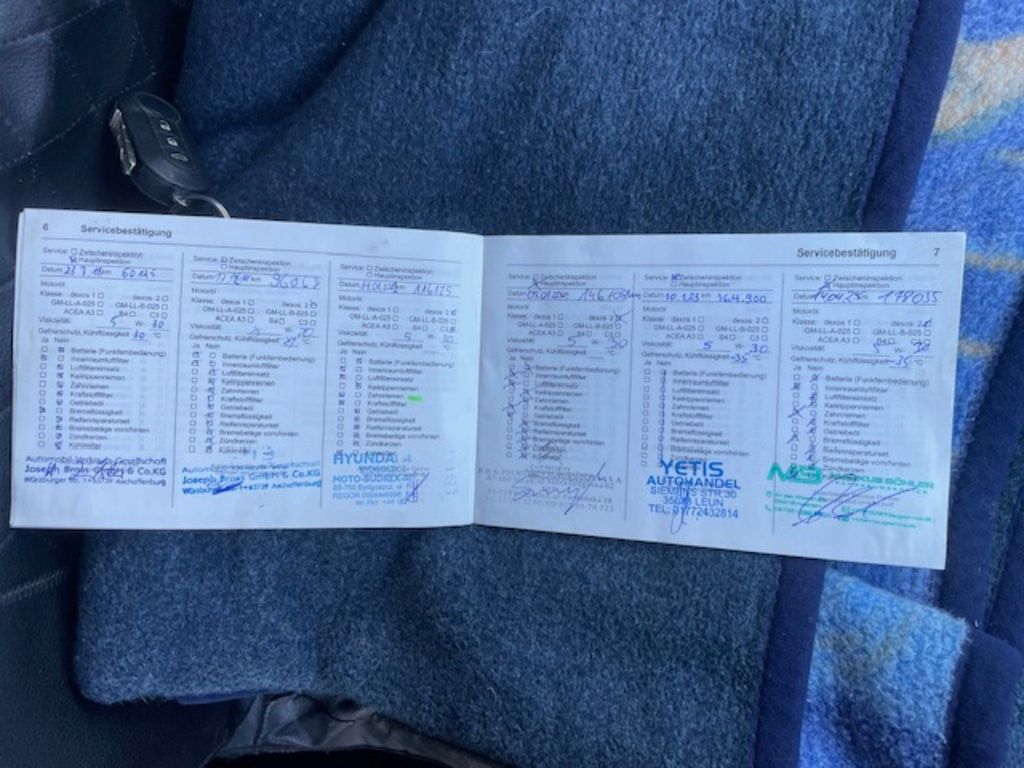 6 Servicebestätigung
Service: Zwischeninspektion
Hauptinspektion
Datum km 60125
Motoröl
Klasse: dexos 1 dexos 2
GM-LL-A-025 GM-LL-B-025
ACEA A3 B4 C3
Viskosität 5 W- 30
Gefrierschutz, Kühlflüssigkeit 30 °C
Ja Nein
Batterie (Funkfernbedienung)
Innenraumluftfilter
Luftfiltereinsatz
Keilrippenriemen
Zahnriemen
Kraftstofffilter
Getriebeöl
Bremsflüssigkeit
Reifenreparaturset
Bremsbeläge vorn/hinten
Zündkerzen
Kühlmittel
Automobil-Verkaufs-Gesellschaft
Joseph Brass GmbH & Co.KG
Würzburger Str. 63739 Aschaffenburg
Service: Zwischeninspektion
Hauptinspektion
Datum km
Motoröl
Klasse: dexos 1 dexos 2
GM-LL-A-025 GM-LL-B-025
ACEA A3 B4 C3
Viskosität W-
Gefrierschutz, Kühlflüssigkeit °C
Ja Nein
Batterie (Funkfernbedienung)
Innenraumluftfilter
Luftfiltereinsatz
Keilrippenriemen
Zahnriemen
Kraftstofffilter
Getriebeöl
Bremsflüssigkeit
Reifenreparaturset
Bremsbeläge vorn/hinten
Zündkerzen
Kühlmittel
Joseph Brass GmbH & Co.KG
63739 Aschaffenburg
Service: Zwischeninspektion
Hauptinspektion
Datum 116125
Motoröl
Klasse: dexos 1 dexos 2
GM-LL-A-025 GM-LL-B-025
ACEA A3 B4 C3
Viskosität 5 W- 30
Gefrierschutz, Kühlflüssigkeit °C
Ja Nein
Batterie (Funkfernbedienung)
Innenraumluftfilter
Luftfiltereinsatz
Keilrippenriemen
Zahnriemen
Kraftstofffilter
Getriebeöl
Bremsflüssigkeit
Reifenreparaturset
Bremsbeläge vorn/hinten
Zündkerzen
HYUNDAI
MOTO-BUDREX
Bydgoszcz
REGON
Servicebestätigung 7
Service: Zwischeninspektion
Hauptinspektion
Datum
Motoröl
Klasse: dexos 1 dexos 2
GM-LL-A-025 GM-LL-B-025
ACEA A3 B4 C3
Viskosität 5 W- 30
Gefrierschutz, Kühlflüssigkeit °C
Ja Nein
Batterie (Funkfernbedienung)
Innenraumluftfilter
Luftfiltereinsatz
Keilrippenriemen
Zahnriemen
Kraftstofffilter
Getriebeöl
Bremsflüssigkeit
Reifenreparaturset
Bremsbeläge vorn/hinten
Zündkerzen
Service: Zwischeninspektion
Hauptinspektion
Datum 10.1.23 km 164.900
Motoröl
Klasse: dexos 1 dexos 2
GM-LL-A-025 GM-LL-B-025
ACEA A3 B4 C3
Viskosität 5 W- 30
Gefrierschutz, Kühlflüssigkeit -35 °C
Ja Nein
Batterie (Funkfernbedienung)
Innenraumluftfilter
Luftfiltereinsatz
Keilrippenriemen
Zahnriemen
Kraftstofffilter
Getriebeöl
Bremsflüssigkeit
Reifenreparaturset
Bremsbeläge vorn/hinten
Zündkerzen
YETIS
AUTOHANDEL
SIEMENS STR.30
LEUN
TEL: 01772432814
Service: Zwischeninspektion
Hauptinspektion
Datum km 178035
Motoröl
Klasse: dexos 1 dexos 2
GM-LL-A-025 GM-LL-B-025
ACEA A3 B4 C3
Viskosität 5 W-
Gefrierschutz, Kühlflüssigkeit -35 °C
Ja Nein
Batterie (Funkfernbedienung)
Innenraumluftfilter
Luftfiltereinsatz
Keilrippenriemen
Zahnriemen
Kraftstofffilter
Getriebeöl
Bremsflüssigkeit
Reifenreparaturset
Bremsbeläge vorn/hinten
Zündkerzen
MARKUS BÖHLER